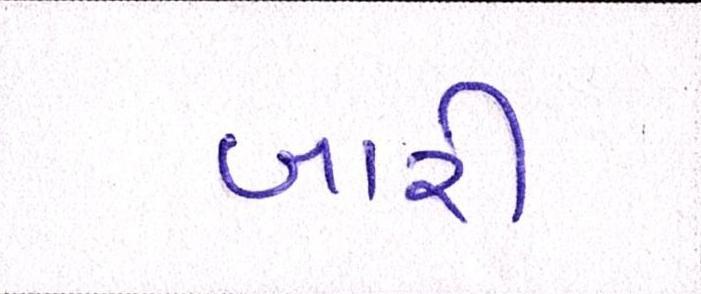 બારી